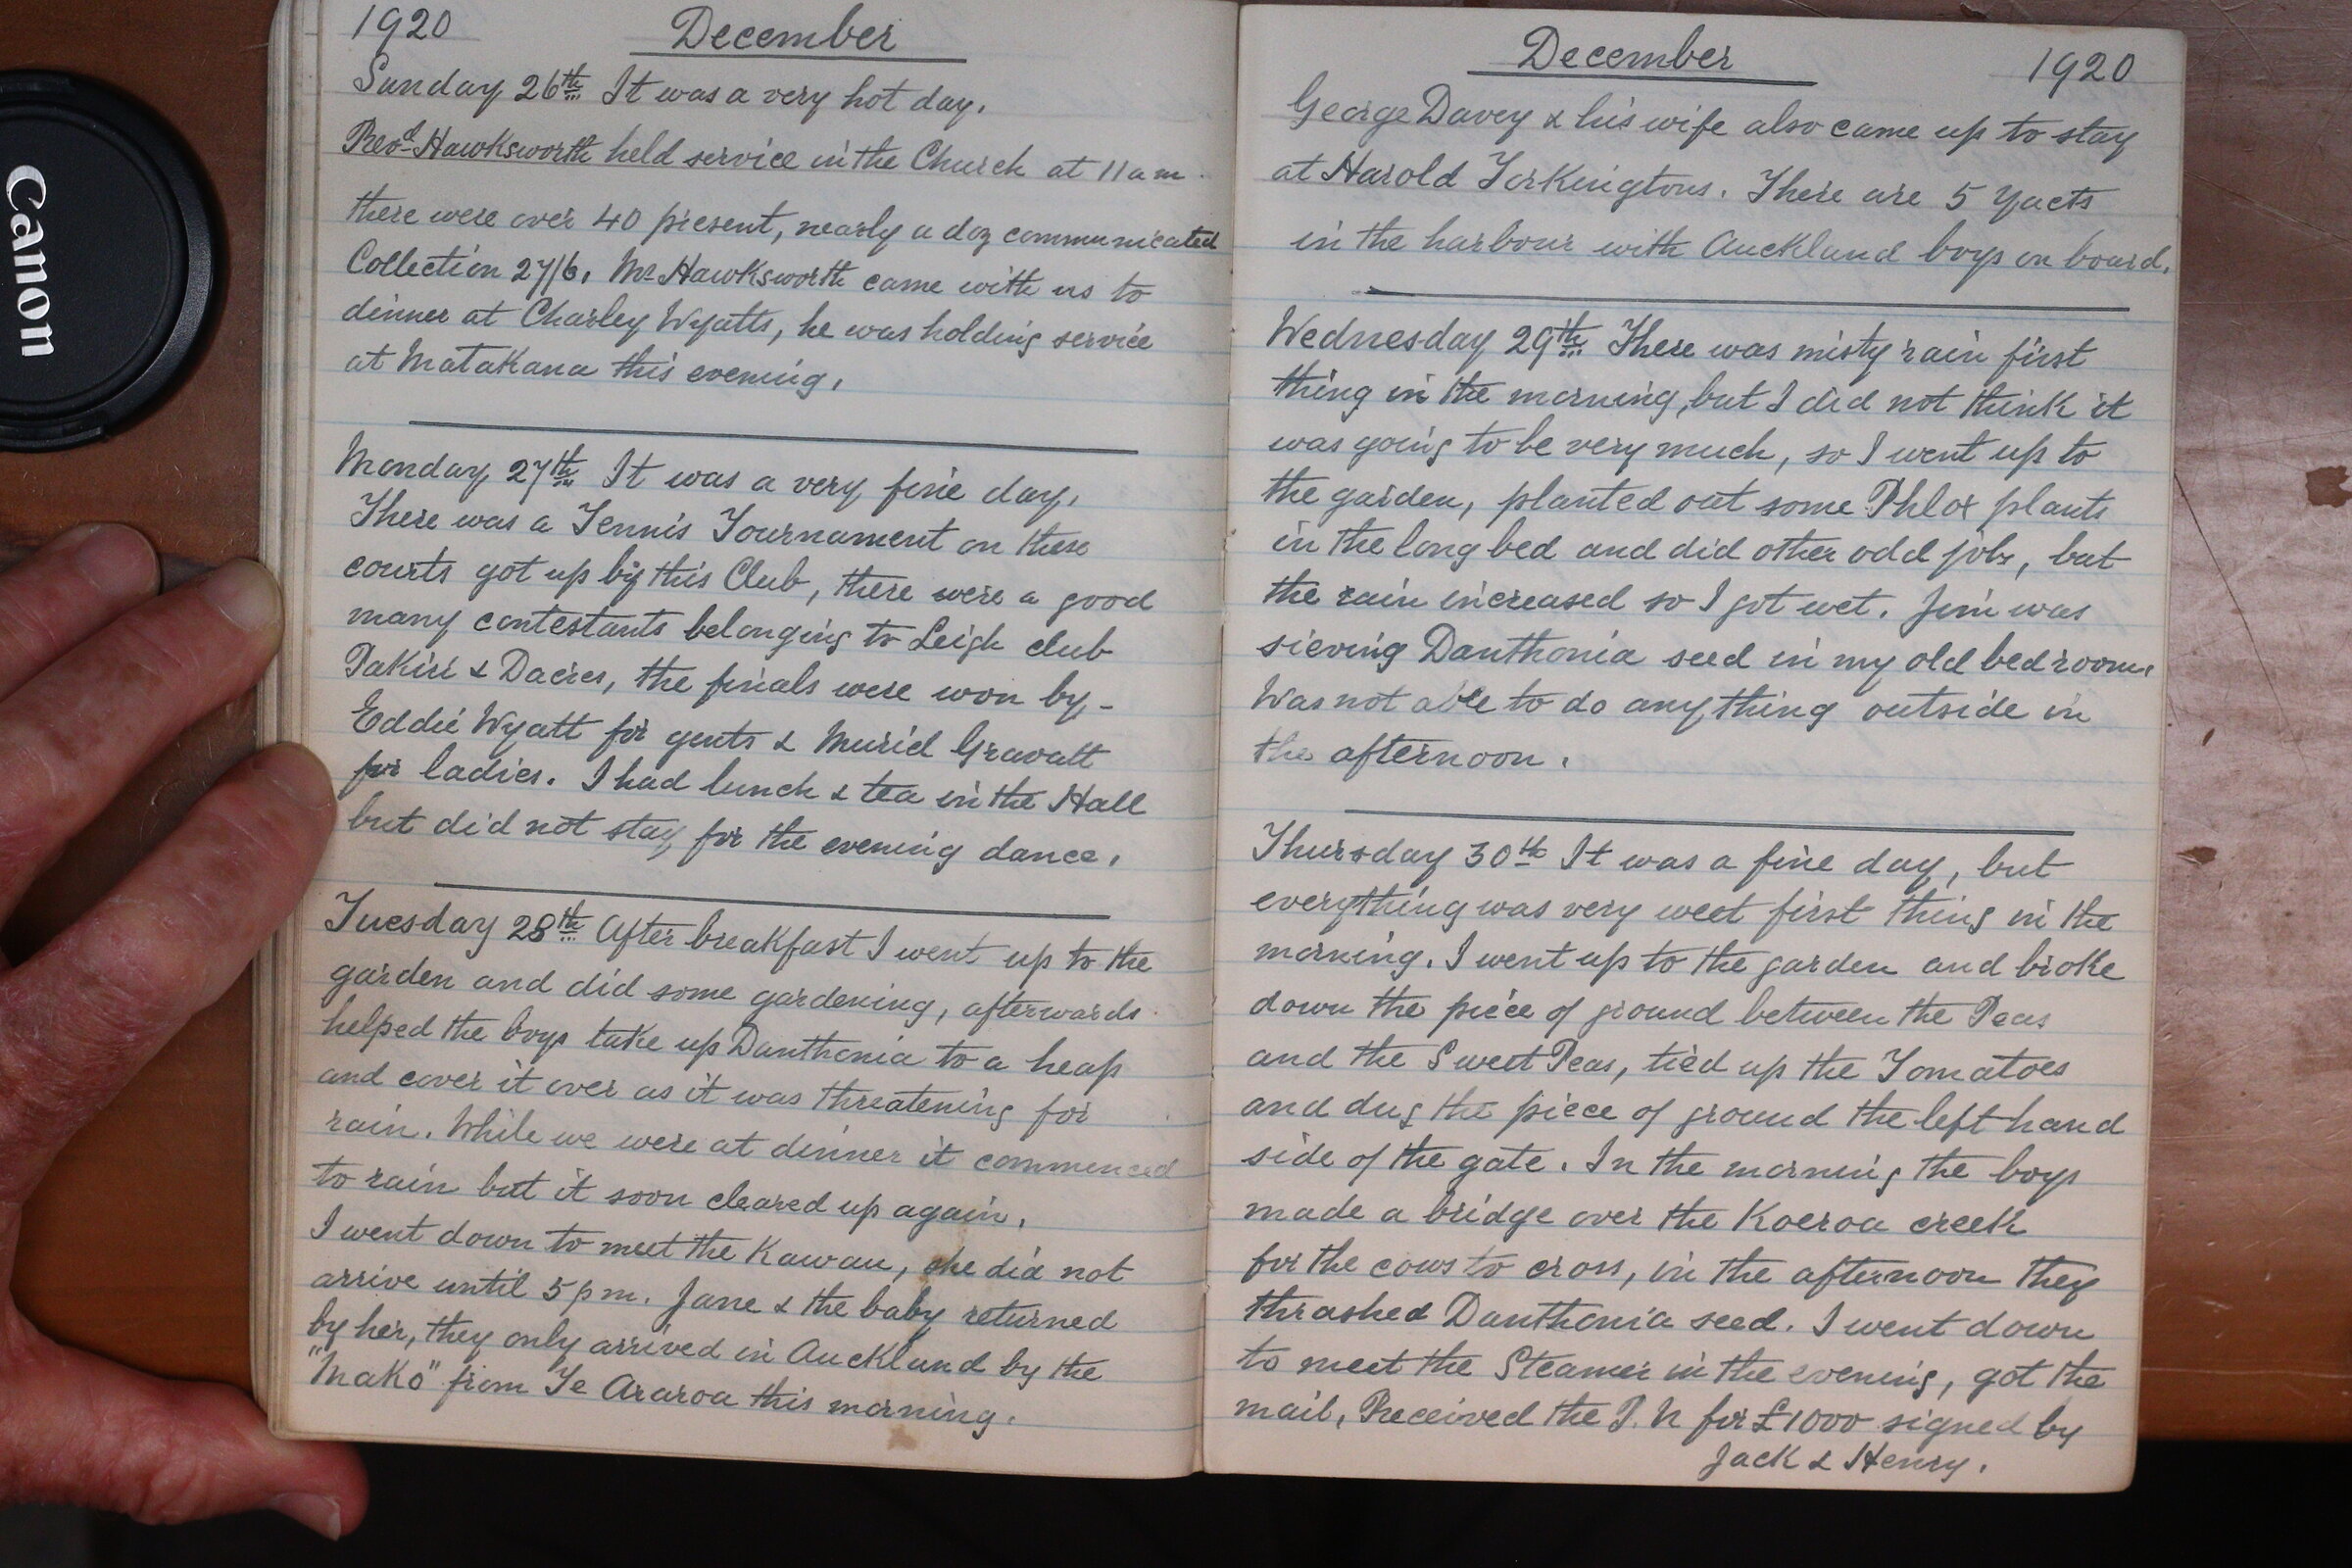 Canon
1920 December
Sunday 26th It was a very hot day.
Revd Hawksworth held service in the Church at 11 am.
there were over 40 present, nearly a doz communicated
Collection 27/6. Mr Hawksworth came with us to
dinner at Charley Wyatts, he was holding service
at Matakana this evening.
Monday 27th It was a very fine day.
There was a Tennis Tournament on these
courts got up by this Club, there were a good
many contestants belonging to Leigh club
Pakiri & Dacres, the finals were won by-
Eddie Wyatt for gents & Muriel Gravatt
for ladies. I had lunch & tea in the Hall
but did not stay for the evening dance.
Tuesday 28th After breakfast I went up to the
garden and did some gardening, afterwards
helped the boys take up Danthonia to a heap
and cover it over as it was threatening for
rain. While we were at dinner it commenced
to rain but it soon cleared up again.
I went down to meet the Kawau, she did not
arrive until 5 pm. Jane & the baby returned
by her, they only arrived in Auckland by the
"Mako" from Te Araroa this morning.
December 1920
George Davey & his wife also came up to stay
at Harold Torkingtons. There are 5 Yacts
in the harbour with Auckland boys on board.
Wednesday 29th There was misty rain first
thing in the morning, but I did not think it
was going to be very much, so I went up to
the garden, planted out some Phlox plants
in the long bed and did other odd jobs, but
the rain increased so I got wet. Jim was
sieving Danthonia seed in my old bedroom.
Was not able to do anything outside in
the afternoon.
Thursday 30th It was a fine day, but
everything was very weet first thing in the
morning. I went up to the garden and broke
down the piece of ground between the Peas
and the Sweet Peas, tied up the Tomatoes
and dug the piece of ground the left hand
side of the gate. In the morning the boys
made a bridge over the Koeroa creek
for the cows to cross, in the afternoon they
thrashed Danthonia seed. I went down
to meet the Steamer in the evening, got the
mail, Received the P. N for £1000 signed by
Jack & Henry.